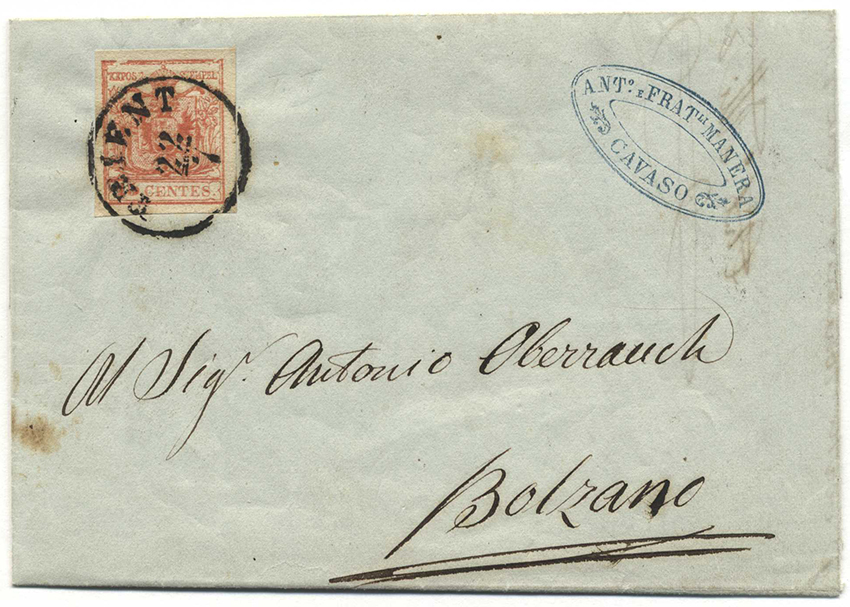 TRIENT
22
CENTES.
ANT.º E FRAT.LLI MANERA
CAVASO
Al Sig.r Antonio Oberrauch
Bolzano